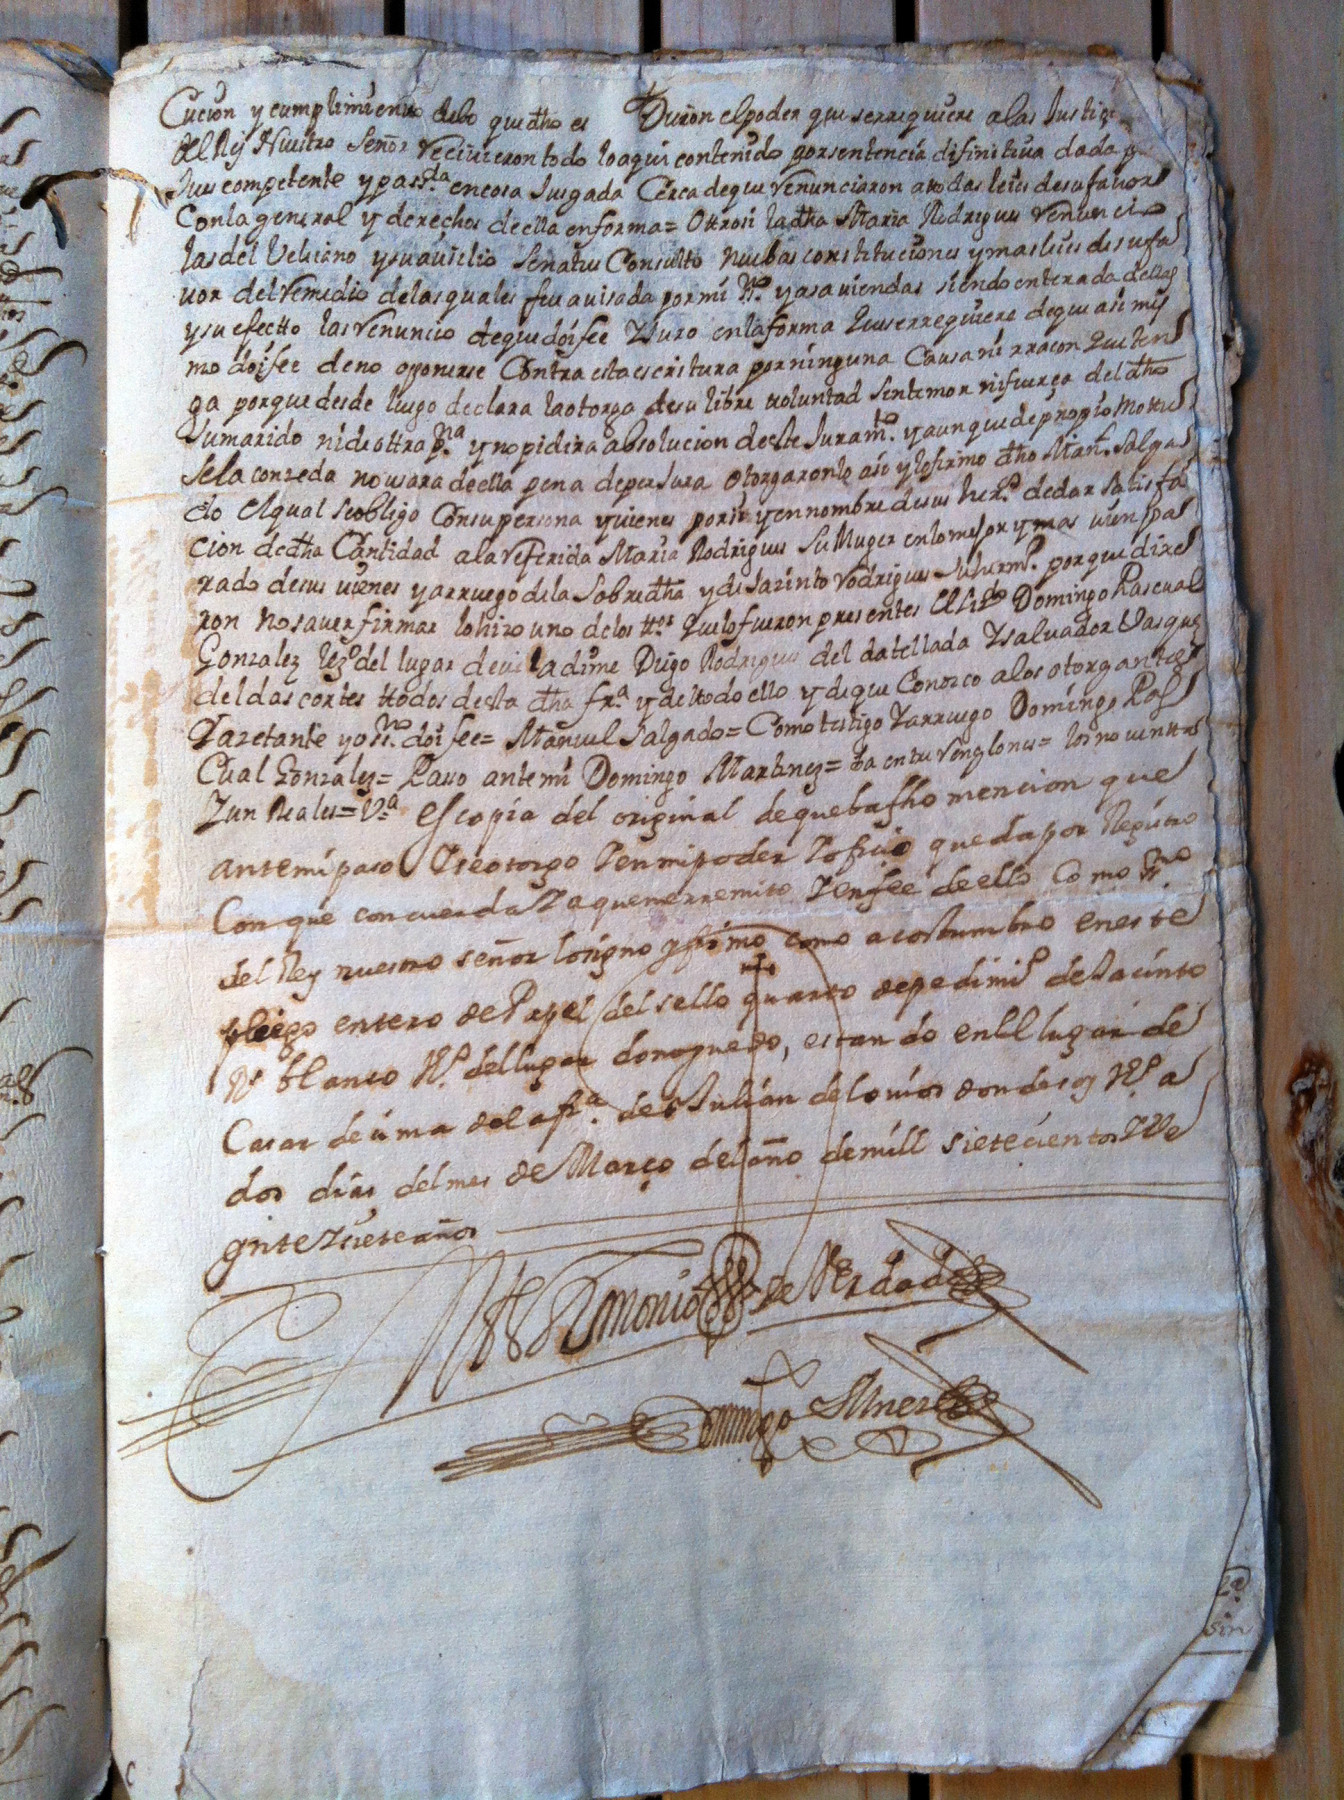 Cucion y cumplimiento delo que dho es Dieron el poder que serrequiere alas Justiçi
del Rey Nuestro Señor Reciuieron todo lo aqui contenido por sentencia difinitiua dada y
Jues competente y passda en cosa Jusgada Cerca de que Renunciaron atodas leies desufauor
Conla general y derechos deella enforma= Otrosi la dha Maria Rodrigues Renuncio
las del Veliano y su ausilio Senatus Consulto nuebas constituciones y mas leies de su fa
uor del Remedio delas quales fue auisada por mi y asauiendas siendo enterada dellas
y su efectto las Renuncio de que doi fee y Juro en la forma que serrequiere deque asi mis
mo doi fee deno oponerse Contra esta escritura por ninguna Causa ni rracon que ten
ga porque desde luego declara la otorga desu libre voluntad sin temor ni fuerça del dho
sumarido nideottra pna y no pidira absolucion deeste Juramto. y aunque de propio Motu
sela conzeda no usara deella pena de perjura Otorgaronlo asi y lo firmo dho Manl. Salga
do elqual se obligo Consu persona y vienes porsi y en nombre de sus her.os dedar satisfa
cion dedha Cantidad ala referida Maria Rodrigues Su Muger en lo mejor y mas uien pa
rado desus uienes y arruego dela Sobredha y de Jacinto Rodrigues su herm.o porque dixe
ron no sauer firmar lo hizo uno delos ttos que lo fueron presentes el Lizdo Domingo Pascual
Gonzalez vezo del lugar de uiladime Diego Rodrigues del datellada y Salvador Vasquez
deldas cortes ttodos desta dha fra. y dettodo ello y de que Conozco alos otorgantes
y azetante yo ssno doi fee= Manuel Salgado= Como testigo y arruego Domingo Pas
Cual Gonzalez= Passo ante mi Domingo Martinez= ba entre renglones=
y un Reales= Va es copia del original de que ba fho mencion que
ante mi paso y se otorgo y en mi poder y oficio queda por Registro
Con que concuerda y a que me rremito y en fee de ello Como ssno
del Rey nuestro señor lo signo y firmo como acostumbro en este
pliego entero de Papel del sello quarto de pedimito de Jacinto
Rs blanco Vo. del lugar donoguedo, estando en el lugar de
Casar de uma de la fra. de s Julian de lo uios donde soy Vo. a
dos dias del mes de Março del año de mill sietecientos y Ve
ynte y siete años
Antonio de Verdad
Domingo Mnez